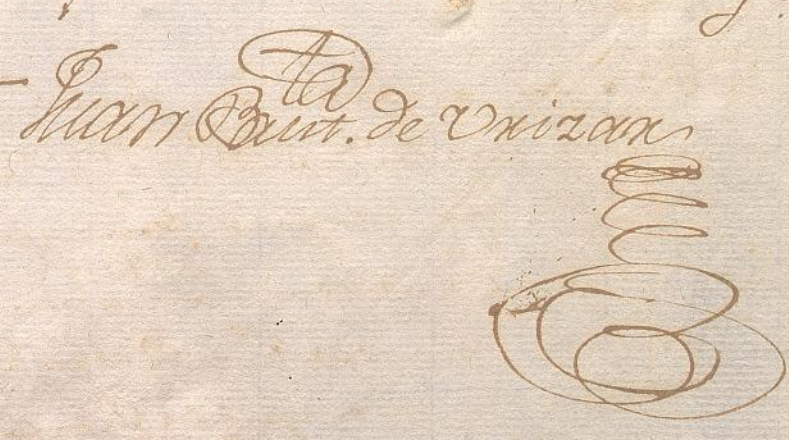 Juan Baut.ta de Vrizar